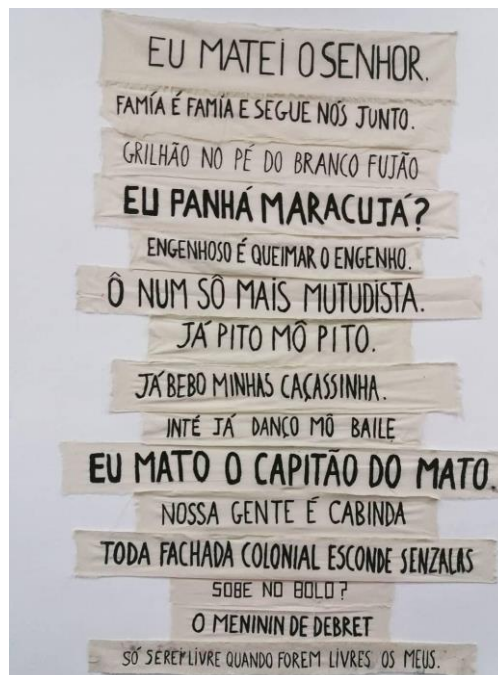 EU MATEI O SENHOR.
FAMÍA É FAMÍA E SEGUE NÓS JUNTO.
GRILHÃO NO PÉ DO BRANCO FUJÃO
EU PANHÁ MARACUJÁ?
ENGENHOSO É QUEIMAR O ENGENHO.
Ô NUM SÔ MAIS MUTUDISTA.
JÁ PITO MÔ PITO.
JÁ BEBO MINHAS CAÇASSINHA.
INTÉ JÁ DANÇO MÔ BAILE
EU MATO O CAPITÃO DO MATO.
NOSSA GENTE É CABINDA
TODA FACHADA COLONIAL ESCONDE SENZALAS
SOBE NO BOLO?
O MENININ DE DEBRET
SÓ SEREI LIVRE QUANDO FOREM LIVRES OS MEUS.